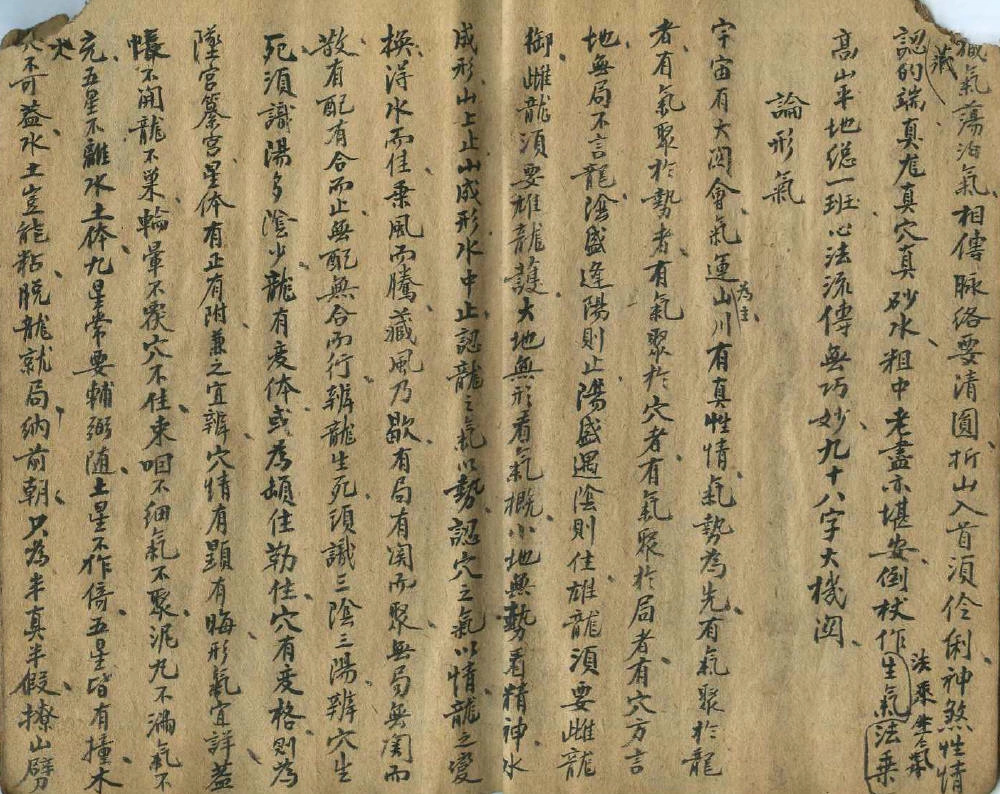 藏氣蕩泊氣相傳脉络要清圓折山入首須伶俐神煞性情
認的端真龙真穴真砂水粗中老盡亦堪安倒杖作法乘生氣
高山平地總一班心法流傳無巧妙九十八字大機関
論形氣
宇宙有大関會氣運為主山川有真性情氣勢為先有氣聚於龍
者有氣聚於勢者有氣聚於穴者有氣聚於局者有穴方言
地無局不言龍陰盛逢陽則止陽盛遇陰則住雄龍須要雌龍
御雌龍須要雄龍護大地無形看氣概小地無勢看精神水
成形山上止山成形水中止認龍之氣以勢認穴之氣以情龍之變
换淂水而住乗風而騰藏風乃歇有局有関而聚無局無関而
散有配有合而止無配無合而行辨龍生死須識三陰三陽辨穴生
死須識陽多陰少龍有变体或為頓住勒住穴有变格則為
墜宮篡宮星体有正有附兼之宜辨穴情有顯有晦形氣宜詳蓋
帳不開龍不巢輪暈不覆穴不住束咽不细氣不聚泥丸不滿氣不
充五星不離水土体九星常要輔弼随土星不作倚五星皆有撞木
火不可益水土豈能粘脱龍就局纳前朝只為半真半假撩山劈